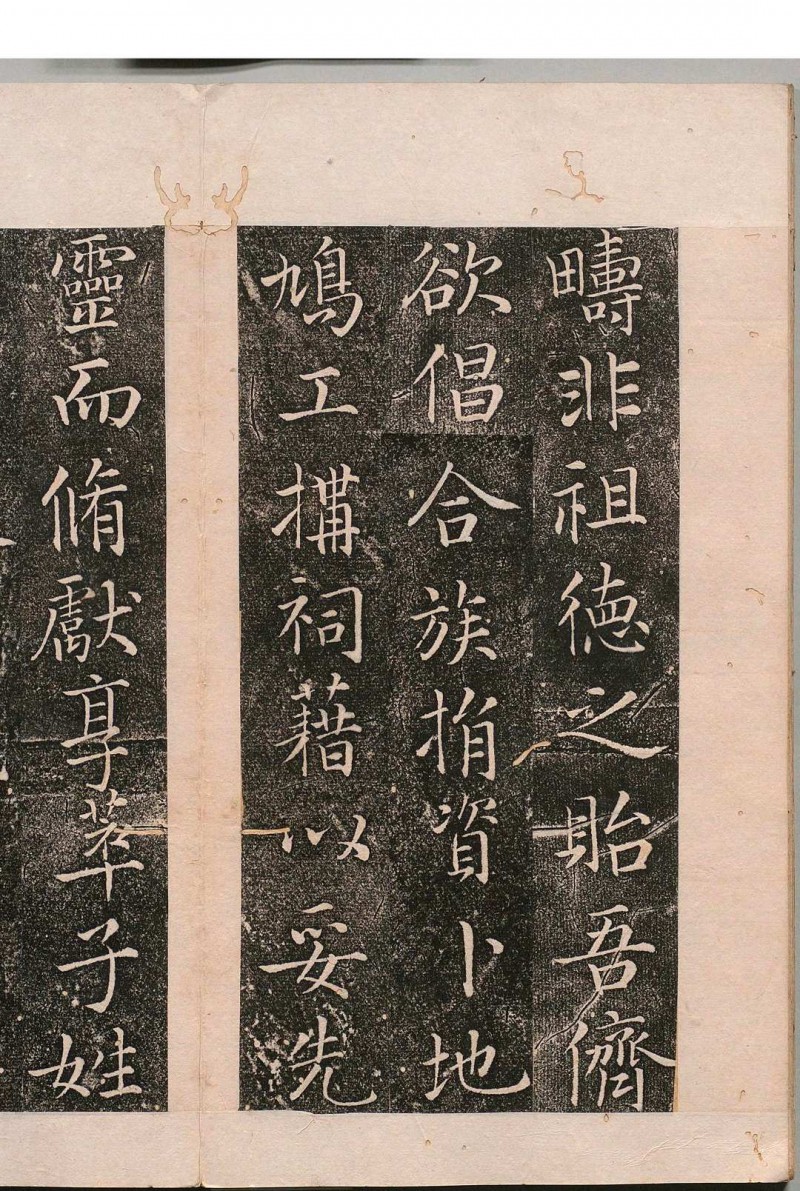 疇非祖德之貽吾儕
欲倡合族捐資卜地
鳩工搆祠藉以妥先
靈而脩獻享萃子姓